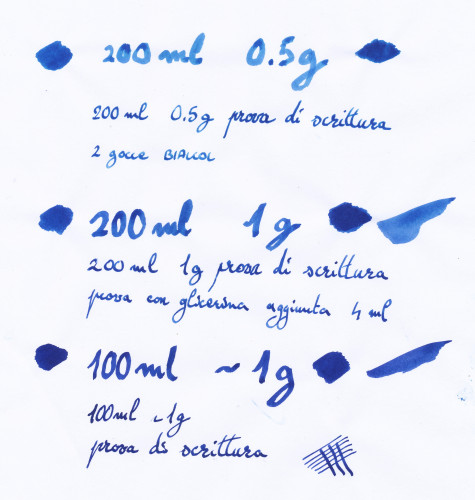 200 ml 0.5g
200 ml 0.5g prova di scrittura
2 gocce BIACCOL
200 ml 1g
200 ml 1g prova di scrittura
prova con glicerina aggiunta 4 ml
100 ml ~1g
100 ml ~1g
prova di scrittura